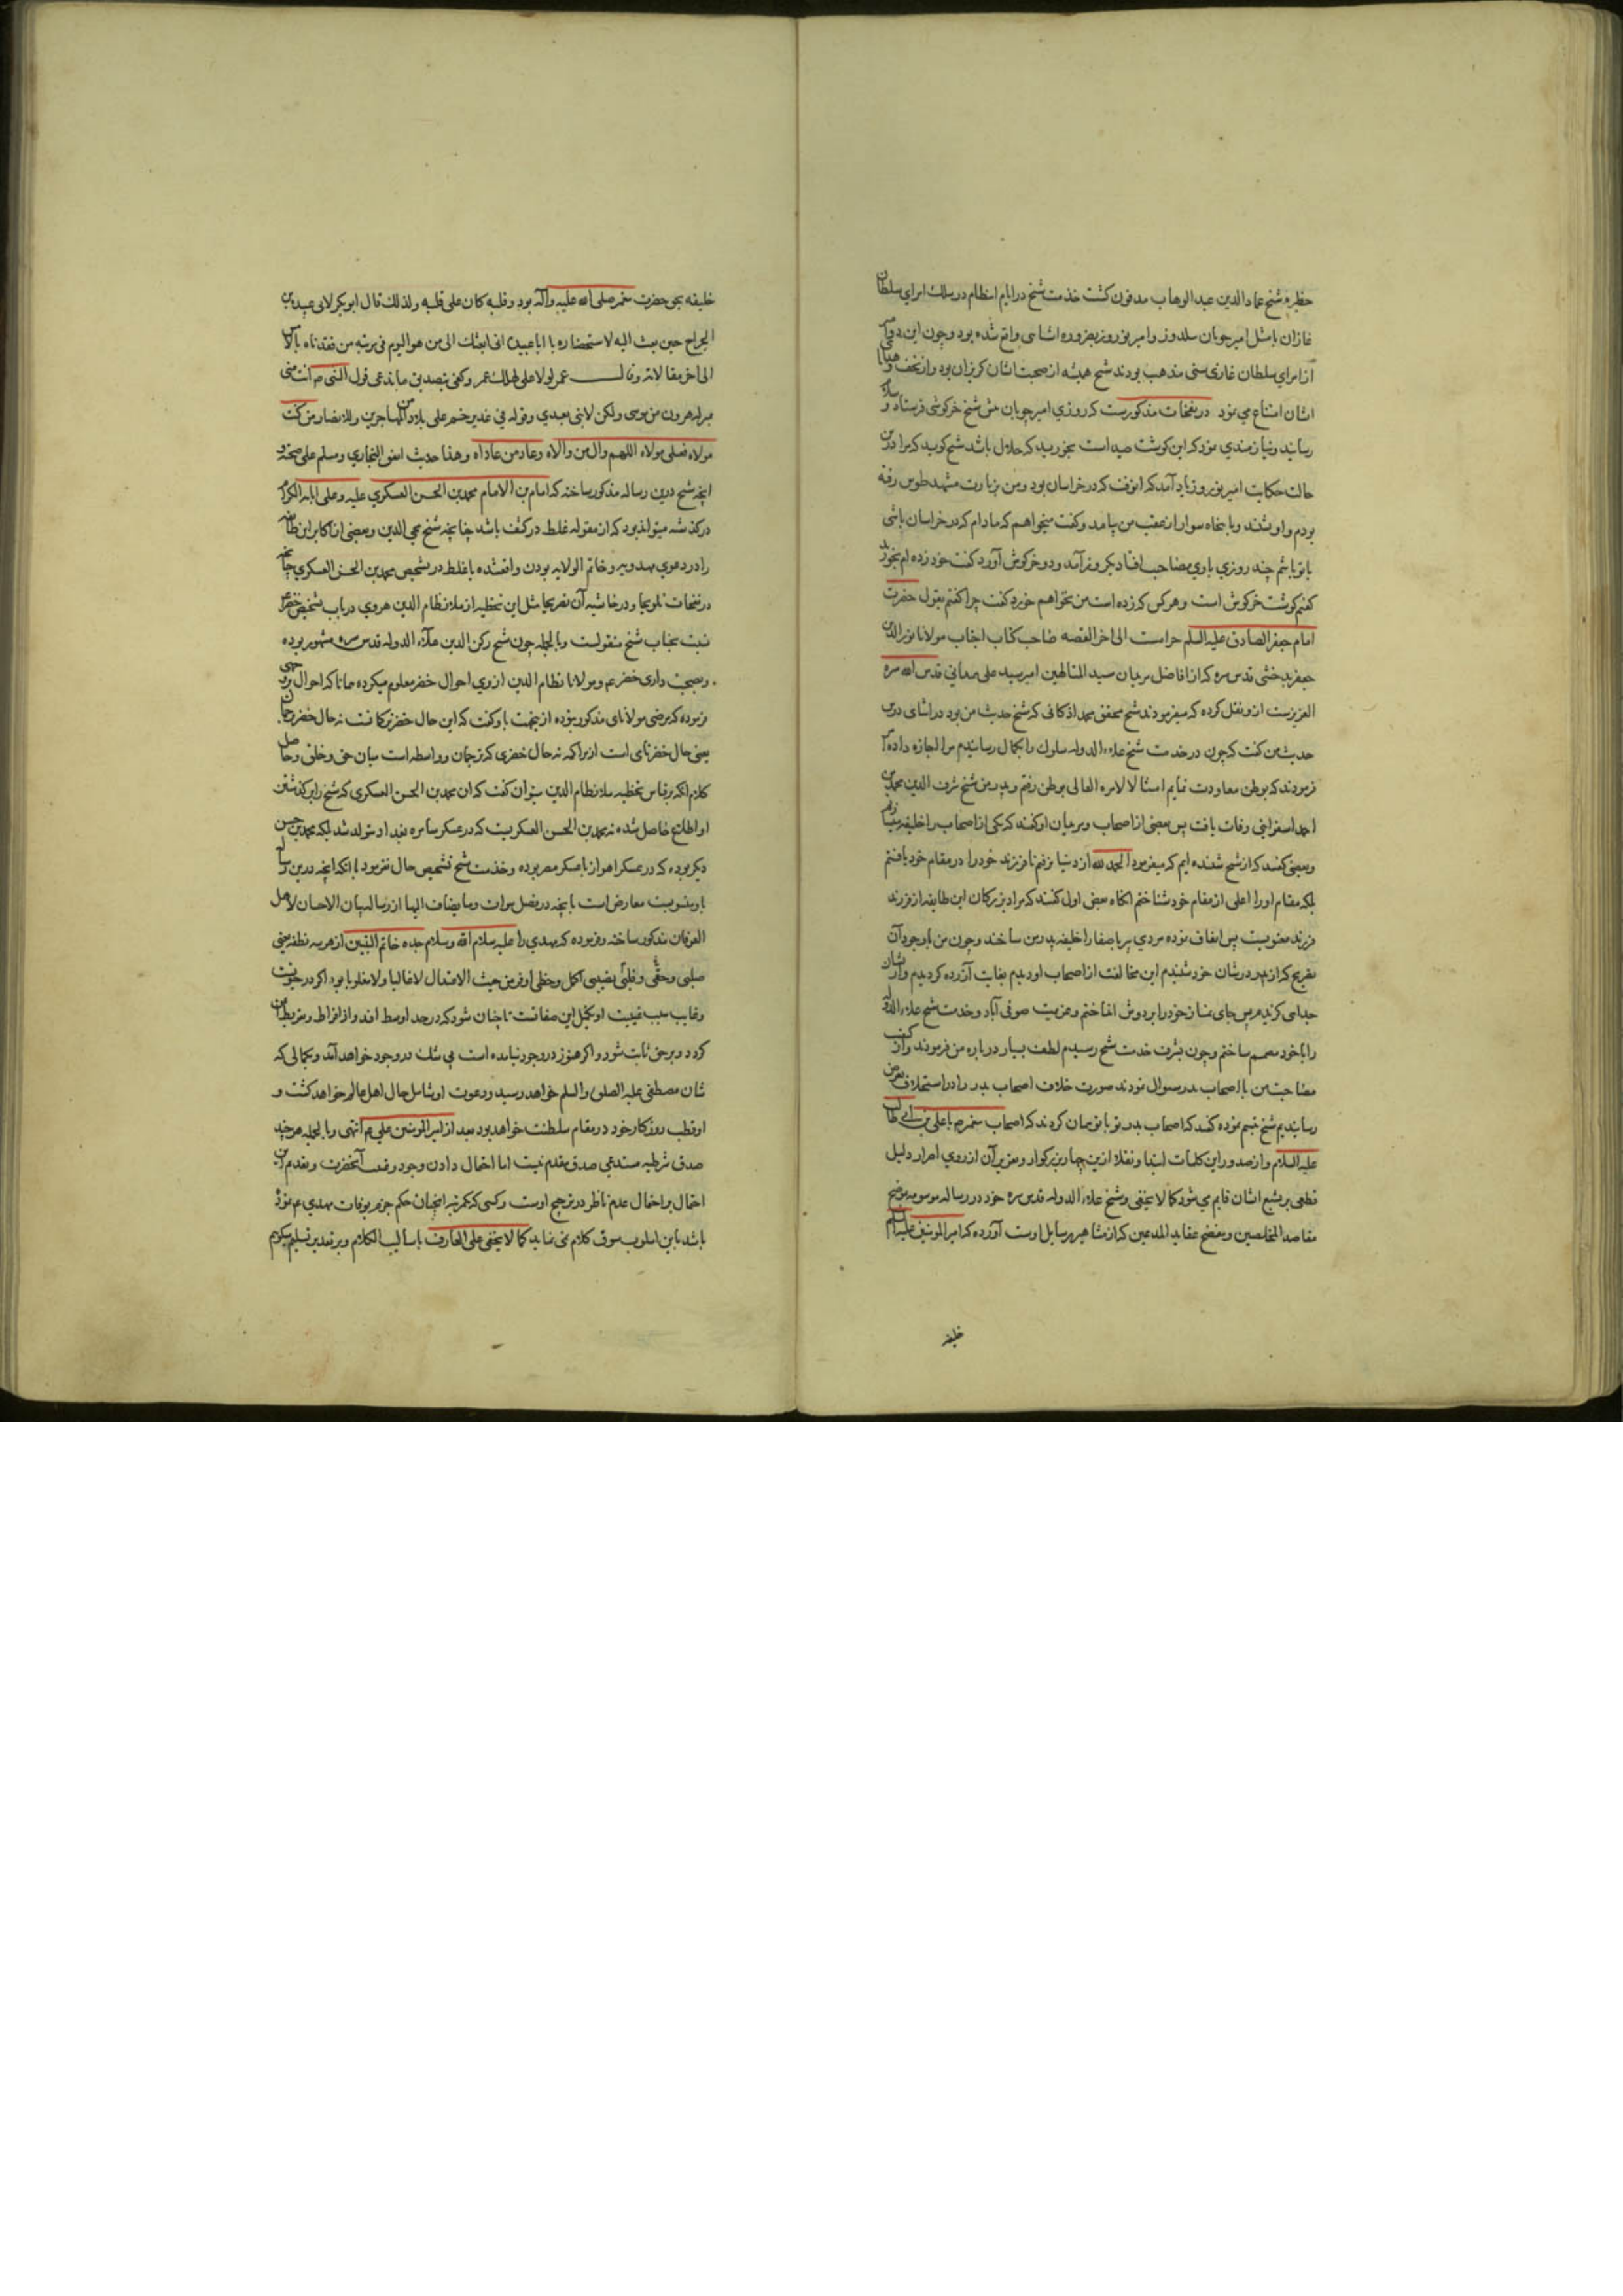 حظیره شیخ عماد الدین عبد الوهاب مدفون کشت خدمت شیخ در ایام انتظام در سلك امرای سلطان
غازان با مثل امیر چوبان سلدوز و امیر نوروز بضروره اشنایی واقع شده بود و چون این دو امیر
از امرای سلطان غازی سنی مذهب بودند شیخ همیشه از صحبت ایشان کریزان بود و از تحف و هدایا
ایشان امتناع می نمود در نفحات مذکورست که روزی امیر چوبان پیش شیخ خرکوشی فرستاد و سلام
رسانید و نیازمندی نمود که این کوشت صید است بخورید که حلال باشد شیخ کوید که مرا درین
حالت حکایت امیر نوروز یاد آمد که انوقت که در خراسان بود و من بزیارت مشهد طوس رفته
بودم و او شنید و با پنجاه سوار از عقب من بیامد و کفت میخواهم که مادام که در خراسان باشی
با تو باشم چند روزی با وی مصاحبت افتاد دیکر روز آمد و دو خرکوش آورد کفت خود زده ام بخورید
کفتم کوشت خرکوش است و هر کس که زده است من نخواهم خورد کفت چرا کفتم بقول حضرت
امام جعفر الصادق علیه السلم حرامست الی اخر القصه صاحب کتاب اجناب مولانا نور الدین
جعفر بدخشی قدس سره که از افاضل مریدان سید المتالهین امیر سید علی همدانی قدس الله سره
العزیزست ازو نقل کرده که میفرمودند شیخ محقق محمد اذکانی که شیخ حدیث من بود در اثنای درس
حدیث من کفت که چون در خدمت شیخ علاء الدوله سلوك را بکمال رسانیدم مرا اجازه داده
فرمودند که بوطن معاودت نمایم امتثالا لامره العالی بوطن رفتم و پدر من شیخ شرف الدین محمد بن
احمد اسفراینی وفات یافت پس بعضی از اصحاب و مریدان او کفتند که یکی از اصحاب را خلیفه میسازیم
و بعضی کفتند که از شیخ شنیده ایم که میفرمود الحمد لله از دنیا نرفتم تا فرزند خود را در مقام خود یافتم
بلکه مقام او را اعلی از مقام خود شناختم انکاه بعضی اول کفتند که مراد بزرکان این طایفه از فرزند
فرزند معنویست پس اتفاق نموده مردی پر با صفا را خلیفه پدرمن ساختند و چون من با وجود آن
تصریح که از پدر در شان خود شنیدم این مخالفت از اصحاب او دیدم بغایت آزرده کردیدم و از ایشان
جدایی کزیدم پس جای نماز خود را بر دوش انداختم و عزیمت صوفی آباد و خدمت شیخ علاء الدوله
را با خود مصمم ساختم و چون بشرف خدمت شیخ رسیدم لطف بسیار در باره من فرمودند و از کیفیت
مصاحبت من با اصحاب پدر سوال نمودند صورت خلاف اصحاب پدر را در استخلاف بعرض
رسانیدم شیخ تبسم نموده کفتند که اصحاب پدر تو با تو همان کردند که اصحاب پیغمبر ص با علی بن ابی طالب
علیه السلام و از صدور این کلمات ابتدا و نقلا ازین چهار بزرکوار و تقریر آن از روی اصرار دلیل
قطعی بر تشیع ایشان قایم می شود کما لا یخفی و شیخ علاء الدوله قدس سره خود در رساله موسومه بموضح
مقاصد المخلصین و مفضح عقاید المدعین که از مشاهیر رسایل اوست آورده که امیر المومنین علیه السلم
خلیفه
خلیفه بحق حضرت پیغمبر صلی الله علیه وآله بود و قلبه کان علی قلبه ولذلك قال ابو بکر لابی عبیدة بن
الجراح حین بعث الیه لاستحضاره یا ابا عبیدة انی ابعثك الی من هو الیوم فی مرتبه من فقدناه بالامس
الی اخر مقالاته وقال عمر لولا علی لهلك عمر وکفی بتصدیق ما ندعی قول النبی ص انت منی
بمنزله هرون من موسی ولکن لا نبی بعدی وقوله فی غدیر خم علی ملاء من المهاجرین والانصار من کنت
مولاه فعلی مولاه اللهم وال من والاه وعاد من عاداه وهذا حدیث اتفق البخاری ومسلم علی صحته و
انچه شیخ درین رساله مذکور ساخته که امام بن الامام محمد بن الحسن العسکری علیه وعلی ابائه الکرام
درکذشته میتواند بود که از مقوله غلط در کشف باشد چنانچه شیخ محی الدین و بعضی از اکابر این طایفه
را در دعوی مهدویه و خاتم الولایه بودن واقعشده یا غلط در تشخیص محمد بن الحسن العسکری چنانچه
در نفحات تلویحا و در حاشیه آن تصریحا مثل این تخطیه از ملا نظام الدین هروی در باب تشخیص خضر
نسبت بجناب شیخ منقولست و بالجمله چون شیخ رکن الدین علاء الدوله قدس سره مشهور بوده
بصحبت داری خضر ع و مولانا نظام الدین از وی احوال خضر معلوم میکرده همانا که احوال بر وجهی
فرموده که مرضی مولانای مذکور نبوده ازینجهت باو کفت که این حال خضر ترکانست نه حال خضر ترجمان
یعنی حال خضر نامی است از تراکمه نه حال خضری که ترجمان و واسطه است میان حق و خلق و حاصل
کلام انکه بر قیاس تخطیه ملا نظام الدین میتوان کفت که ان محمد بن الحسن العسکری که شیخ را بر کذشتن
او اطلاع حاصل شده نه محمد بن الحسن العسکریست که در عسکر سامره بغداد متولد شد بلکه محمد بن حسن
دیکر بوده که در عسکر اهواز یا عسکر مصر بوده و خدمت شیخ تشخیص حال نفرمود با انکه انچه درین رساله
باو منسوبست معارض است بانچه در فصل مراث وما یضاف الیها از رساله بیان الاحسان لاهل
العرفان مذکور ساخته و فرموده که مهدی را علیه سلام الله وسلام جده خاتم النبیین از هر سه نطفه یعنی
صلبی وحقی وقلبی نصیبی اکمل وحظی اوفر من حیث الاعتدال لا غالبا ولا مغلوبا بود اکر در حیوتست
وغایب سبب غیبت او تکمیل این صفاتست تا چنان شود که در حد اوسط افتد و از افراط و تفریط ایمن
کردد و بر حق ثابت شود و اکر هنوز در وجود نیامده است بی شك در وجود خواهد آمد و بکمالی که
شان مصطفی علیه الصلوة والسلم خواهد رسید و دعوت او شامل حال اهل عالم خواهد کشت و
او قطب روزکار خود در مقام سلطنت خواهد بود بعد از امیر المومنین علی ع انتهی و بالجمله هر چند
صدق شرطیه مستدعی صدق مقدم نیست اما احتمال دادن وجود و غیبت آنحضرت و تقدم این
احتمال بر احتمال عدم ناظر در ترجیح اوست و کسی که یکمرتبه انچنان حکم جزم بوفات مهدی ع نموده
باشد باین اسلوب سوق کلام نمی نماید کما لا یخفی علی العارف باسالیب الکلام و بر تقدیر تسلیم میکویم